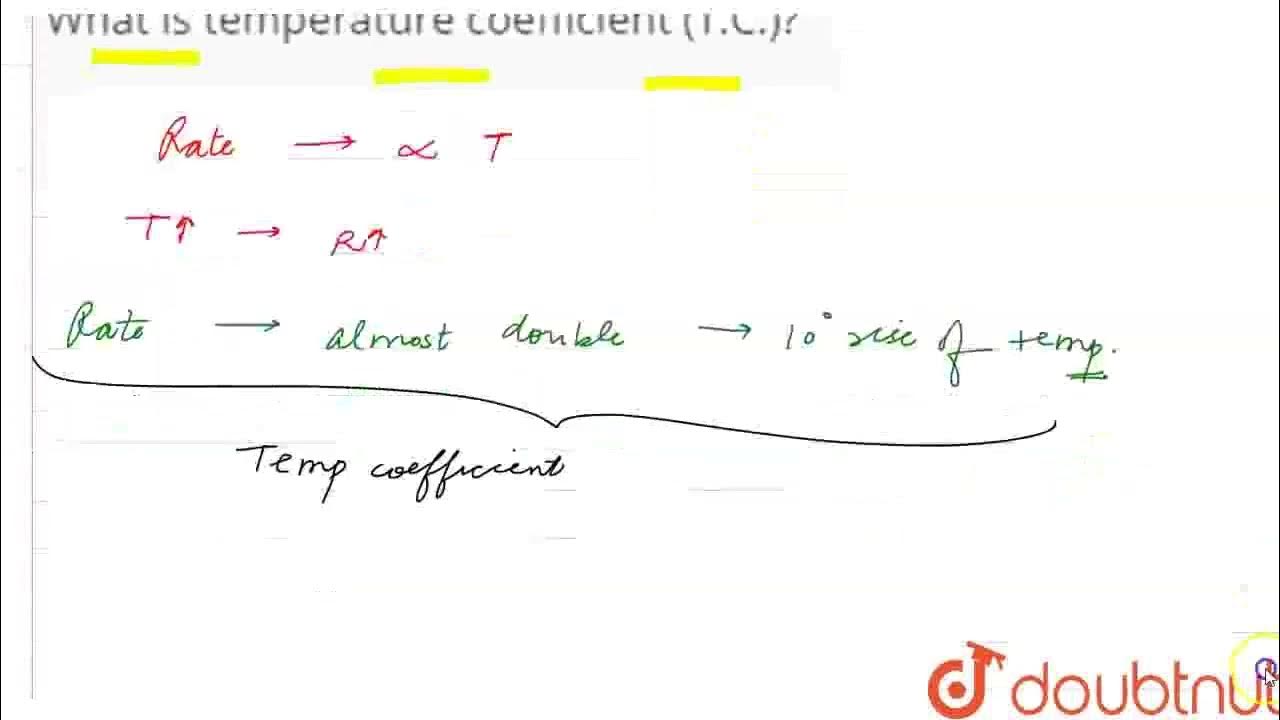 What is temperature coefficient (T.C.)?
Rate → ∝ T
T↑ → R↑
Rate → almost double → 10° rise of temp.
Temp coefficient
doubtnut